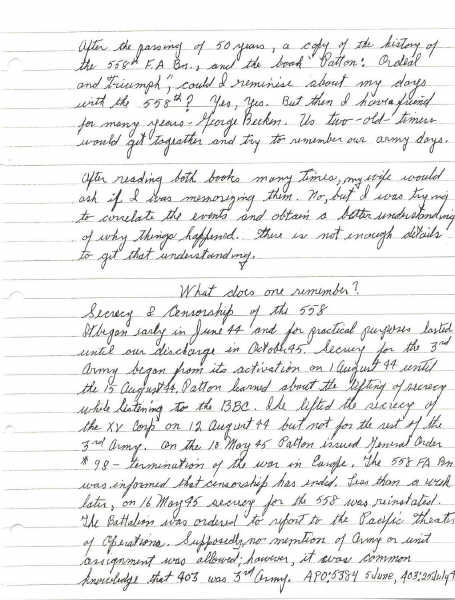 After the passing of 50 years, a copy of the history of
the 558th F.A Bn., and the book "Patton: Ordeal
and Triumph", could I reminise about my days
with the 558th? Yes, Yes. But then I have a friend
for many years - George Becken. Us two-old-timers
would get togeather and try to remember our army days.
After reading both books many times, my wife would
ask if I was memorizing them. No, but I was trying
to correlate the events and obtain a better understanding
of why things happened. There is not enough details
to get that understanding.
What does one remember?
Secrecy & Censorship of the 558
It began early in June 44 and for practical purposes lasted
until our discharge in October 45. Secrecy for the 3rd
Army began from its activation on 1 August 44 until
the 15 August 44. Patton learned about the lifting of secrecy
while listening to the BBC. Ike lifted the secrecy of
the XV Corp on 12 August 44 but not for the rest of the
3rd Army. On the 10 May 45 Patton issued General Order
#98 - termination of the war in Europe. The 558 FA Bn
was informed that censorship has ended. Less than a week
later, on 16 May 45 secrecy for the 558 was reinstated.
The Battalion was ordered to report to the Pacific theater
of Operations. Supposedly, no mention of Army or unit
assignment was allowed; however, it was common
knowledge that 403 was 3rd Army. APO: 5384 5 June, 403: 20 July 4